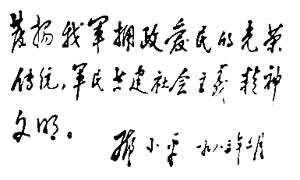 发扬我军拥政爱民的光荣
传统，军民共建社会主义精神
文明。
邓小平 一九八三年二月